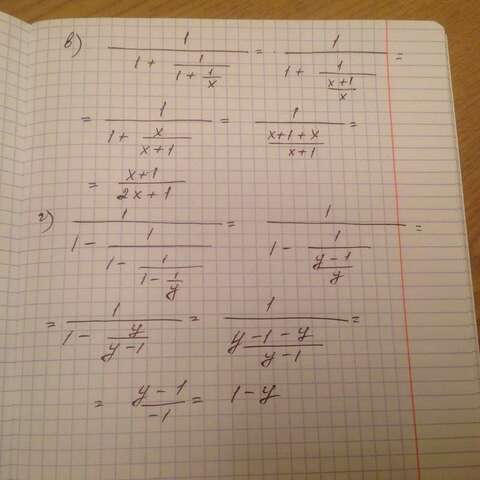 в) 1/(1 + 1/(1 + 1/x)) = 1/(1 + 1/((x+1)/x)) =
= 1/(1 + x/(x+1)) = 1/((x+1+x)/(x+1)) =
= (x+1)/(2x+1)
г) 1/(1 - 1/(1 - 1/(1 - 1/y))) = 1/(1 - 1/((y-1)/y)) =
= 1/(1 - y/(y-1)) = 1/((y-1-y)/(y-1)) =
= (y-1)/(-1) = 1-y